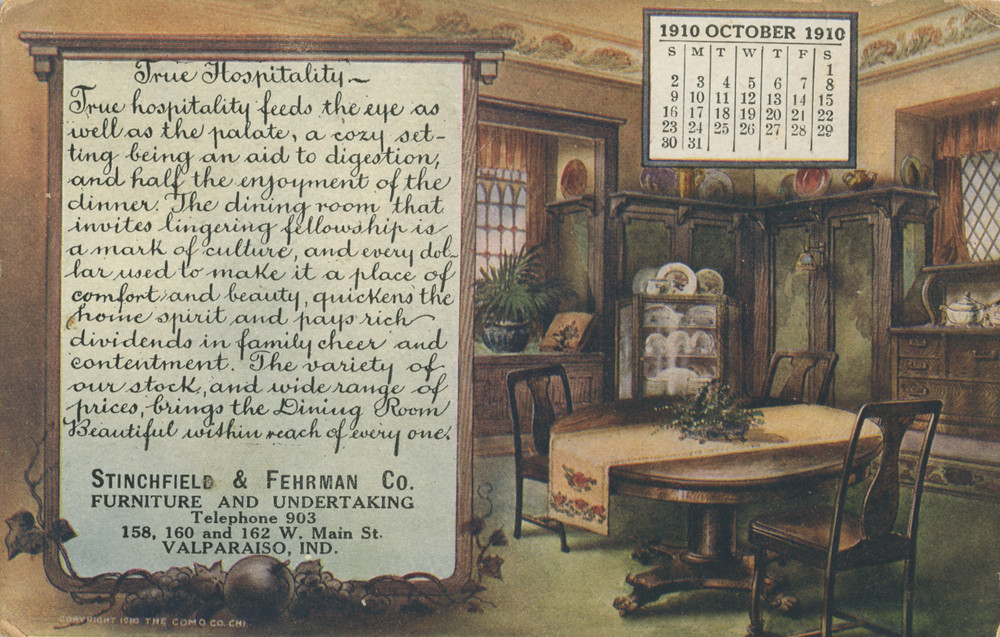 True Hospitality~
True hospitality feeds the eye as
well as the palate, a cozy set-
ting being an aid to digestion,
and half the enjoyment of the
dinner. The dining room that
invites lingering fellowship is
a mark of culture, and every dol-
lar used to make it a place of
comfort and beauty, quickens the
home spirit and pays rich
dividends in family cheer and
contentment. The variety of
our stock, and wide range of
prices, brings the Dining Room
Beautiful within reach of every one.
STINCHFIELD & FEHRMAN CO.
FURNITURE AND UNDERTAKING
Telephone 903
158, 160 and 162 W. Main St.
VALPARAISO, IND.
COPYRIGHT 1910 THE COMO CO. CHI.
1910 OCTOBER 1910
S M T W T F S
1
2 3 4 5 6 7 8
9 10 11 12 13 14 15
16 17 18 19 20 21 22
23 24 25 26 27 28 29
30 31